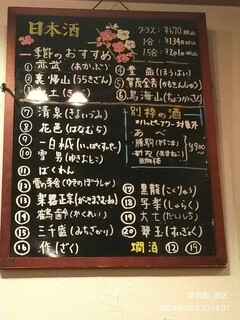 日本酒
グラス ¥670
1合 ¥1340
1.5合 ¥2010
季節のおすすめ
① 赤武(あかぶ)
② 裏帰山(うらきざん)
④ 豊盃(ほうはい)
⑤ 賀茂金秀(かもきんしゅう)
⑥ 鳥海山(ちょうかいさん)
⑦ 清泉(きよいずみ)
⑧ 花邑(はなむら)
⑨ 一白水成(いっぱくすいせい)
⑩ 雪男(ゆきおとこ)
⑪ ばくれん
⑫ 雪の茅舎(ゆきのぼうしゃ)
⑬ 楽器正宗(がっきまさむね)
⑭ 鶴齢(かくれい)
⑮ 三千盛(みちさかり)
⑯ 作(ざく)
別枠の酒
¥900〜
⑰ 黒龍(こくりゅう)
⑱ 写楽(しゃらく)
⑲ 大七(だいしち)
⑳ 翠玉(すいぎょく)
燗酒 ⑫ ⑲
東京都 港区